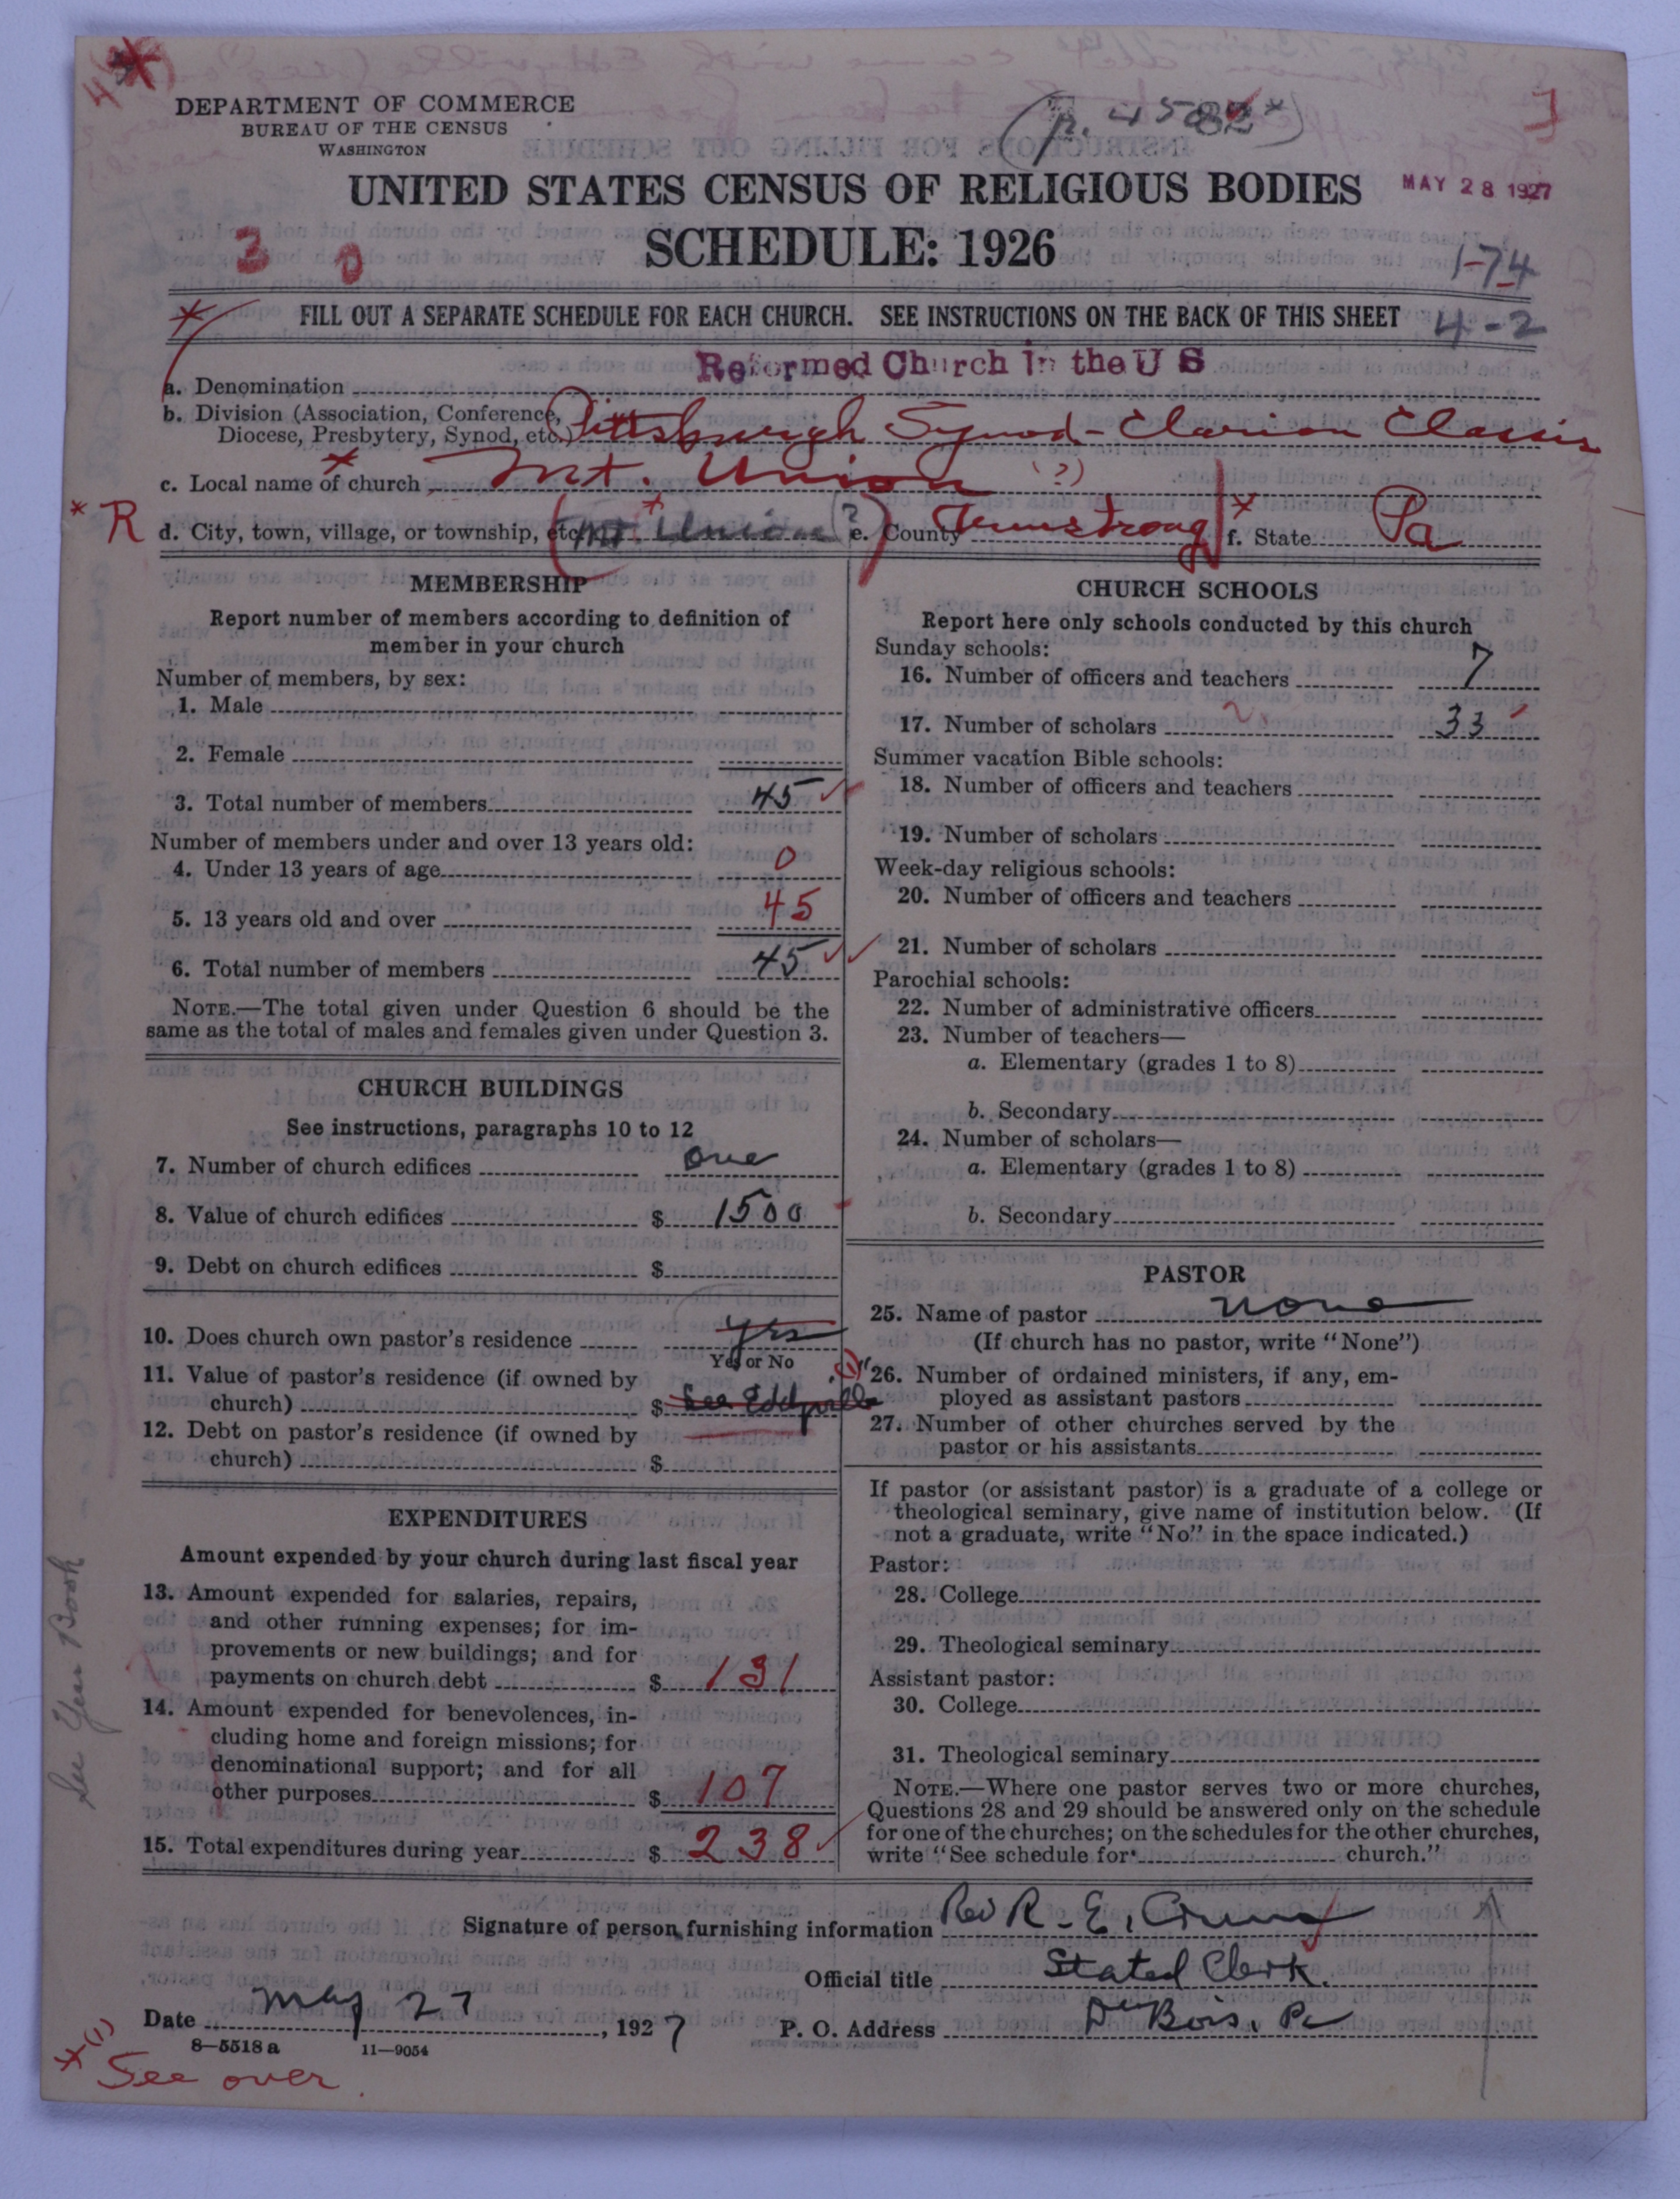 DEPARTMENT OF COMMERCE
BUREAU OF THE CENSUS
WASHINGTON
UNITED STATES CENSUS OF RELIGIOUS BODIES
MAY 28 1927
SCHEDULE: 1926
3 0
1-74
FILL OUT A SEPARATE SCHEDULE FOR EACH CHURCH. SEE INSTRUCTIONS ON THE BACK OF THIS SHEET
4-2
a. Denomination Reformed Church in the U S
b. Division (Association, Conference,
Diocese, Presbytery, Synod, etc.) Pittsburgh Synod - Clarion Classis
c. Local name of church Mt. Union (?)
* R d. City, town, village, or township, etc. (Mt. Union ?) e. County Armstrong f. State Pa
MEMBERSHIP
Report number of members according to definition of
member in your church
Number of members, by sex:
1. Male
2. Female
3. Total number of members 45
Number of members under and over 13 years old:
4. Under 13 years of age 0
5. 13 years old and over 45
6. Total number of members 45
NOTE.—The total given under Question 6 should be the
same as the total of males and females given under Question 3.
CHURCH BUILDINGS
See instructions, paragraphs 10 to 12
7. Number of church edifices one
8. Value of church edifices $ 1500
9. Debt on church edifices $
10. Does church own pastor's residence yes
Yes or No
11. Value of pastor's residence (if owned by
church) $ See Eddyville
12. Debt on pastor's residence (if owned by
church) $
EXPENDITURES
Amount expended by your church during last fiscal year
13. Amount expended for salaries, repairs,
and other running expenses; for im-
provements or new buildings; and for
payments on church debt $ 131
14. Amount expended for benevolences, in-
cluding home and foreign missions; for
denominational support; and for all
other purposes $ 107
15. Total expenditures during year $ 238
See Year Book
CHURCH SCHOOLS
Report here only schools conducted by this church
Sunday schools:
16. Number of officers and teachers 7
17. Number of scholars 33
Summer vacation Bible schools:
18. Number of officers and teachers
19. Number of scholars
Week-day religious schools:
20. Number of officers and teachers
21. Number of scholars
Parochial schools:
22. Number of administrative officers
23. Number of teachers—
a. Elementary (grades 1 to 8)
b. Secondary
24. Number of scholars—
a. Elementary (grades 1 to 8)
b. Secondary
PASTOR
25. Name of pastor none
(If church has no pastor, write "None")
26. Number of ordained ministers, if any, em-
ployed as assistant pastors
27. Number of other churches served by the
pastor or his assistants
If pastor (or assistant pastor) is a graduate of a college or
theological seminary, give name of institution below. (If
not a graduate, write "No" in the space indicated.)
Pastor:
28. College
29. Theological seminary
Assistant pastor:
30. College
31. Theological seminary
NOTE.—Where one pastor serves two or more churches,
Questions 28 and 29 should be answered only on the schedule
for one of the churches; on the schedules for the other churches,
write "See schedule for church."
Signature of person furnishing information Rev R. E.
Official title Stated Clerk.
Date May 27, 1927
P. O. Address DuBois, Pa
8—5518 a 11—9054
* (1) See over.